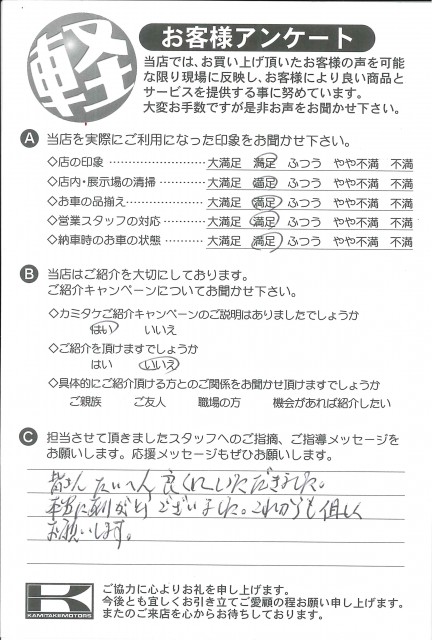 軽
お客様アンケート
当店では、お買い上げ頂いたお客様の声を可能
な限り現場に反映し、お客様により良い商品と
サービスを提供する事に努めています。
大変お手数ですが是非お声をお聞かせ下さい。
A 当店を実際にご利用になった印象をお聞かせ下さい。
◇店の印象 ………………… 大満足 満足 ふつう やや不満 不満
◇店内・展示場の清掃 ………… 大満足 満足 ふつう やや不満 不満
◇お車の品揃え ……………… 大満足 満足 ふつう やや不満 不満
◇営業スタッフの対応 ………… 大満足 満足 ふつう やや不満 不満
◇納車時のお車の状態 ………… 大満足 満足 ふつう やや不満 不満
B 当店はご紹介を大切にしております。
ご紹介キャンペーンについてお聞かせ下さい。
◇カミタケご紹介キャンペーンのご説明はありましたでしょうか
はい いいえ
◇ご紹介を頂けますでしょうか
はい いいえ
◇具体的にご紹介頂ける方とのご関係をお聞かせ頂けますでしょうか
ご親族 ご友人 職場の方 機会があれば紹介したい
C 担当させて頂きましたスタッフへのご指摘、ご指導メッセージを
お願いします。応援メッセージもぜひお願いします。
皆さん たいへん 良くしていただきました。
本当に有りがとう ございました。これからも 宜しく
お願いします。
K
KAMITAKEMOTORS
ご協力に心よりお礼を申し上げます。
今後とも宜しくお引き立てご愛顧の程お願い申し上げます。
またのご来店を心からお待ちしております。